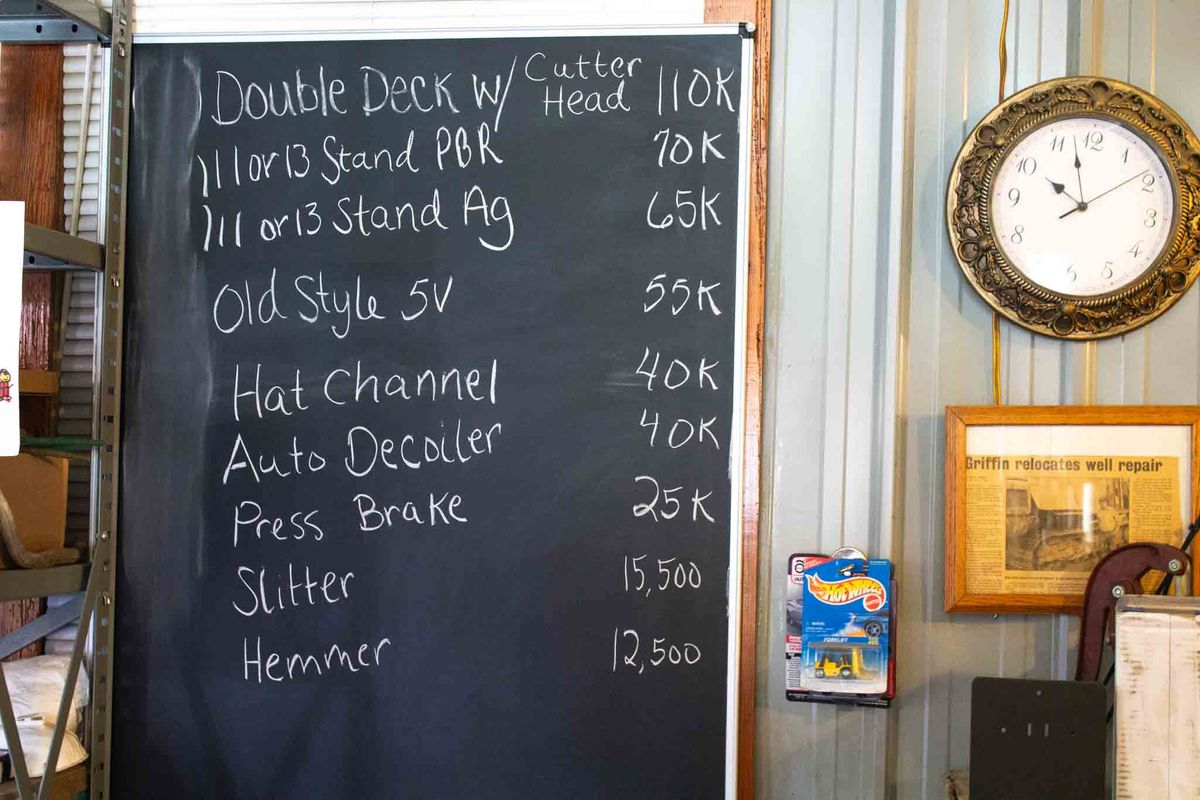 Double Deck w/ Cutter Head 110K
11 or 13 Stand PBR 70K
11 or 13 Stand Ag 65K
Old Style 5V 55K
Hat Channel 40K
Auto Decoiler 40K
Press Brake 25K
Slitter 15,500
Hemmer 12,500
11 12 1
10 2
9 3
8 4
5
Griffin relocates well repair
Hot Wheels
FORKLIFT